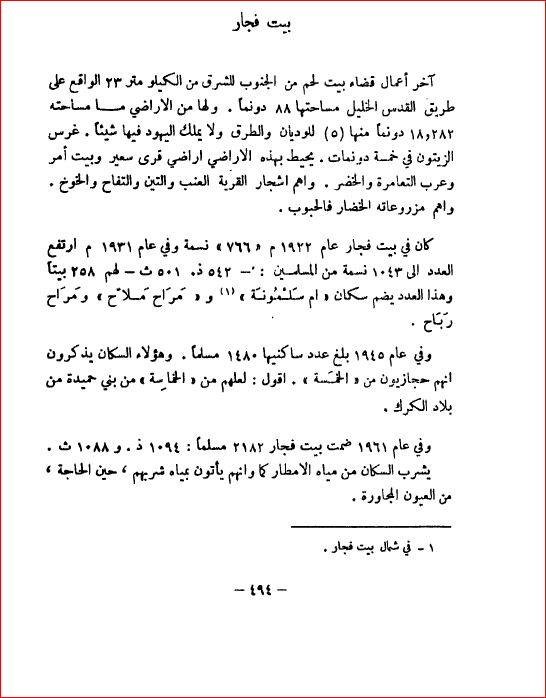 بيت فجار
آخر أعمال قضاء بيت لحم من الجنوب للشرق من الكيلو متر ٢٣ الواقع على
طريق القدس الخليل مساحتها ٨٨ دونماً . ولها من الاراضي مـــا مساحته
١٨,٢٨٢ دونماً منها (٥) للوديان والطرق ولا يملك اليهود فيها شيئاً . غرس
الزيتون في خمسة دونمات . يحيط بهذه الاراضي اراضي قرى سعير وبيت أمر
وعرب التعامرة والخضر . واهم اشجار القرية العنب والتين والتفاح والخوخ .
واهم مزروعاته الخضار فالحبوب .
كان في بيت فجار عام ١٩٢٢ م «٧٦٦» نسمة وفي عام ١٩٣١ م ارتفع
العدد الى ١٠٤٣ نسمة من المسلمين : – ٥٤٢ ذ. ٥٠١ ث – لهم ٢٥٨ بيتاً
وهذا العدد يضم سكان « ام سَلَمُونَة » (١) و « مَرَاح مَـلاّح » ومَرَاح
رَبَاح .
وفي عام ١٩٤٥ بلغ عدد ساكنيها ١٤٨٠ مسلماً . وهؤلاء السكان يذكرون
انهم حجازيون من « الخمَسة » . اقول : لعلهم من « الخماسة » من بني حميدة من
بلاد الكرك .
وفي عام ١٩٦١ ضمت بيت فجار ٢١٨٢ مسلماً : ١٠٩٤ ذ . و ١٠٨٨ ث .
يشرب السكان من مياه الامطار كما وانهم يأتون بمياه شربهم ، حين الحاجة ،
من العيون المجاورة .
١ – في شمال بيت فجار .
– ٤٩٤ –